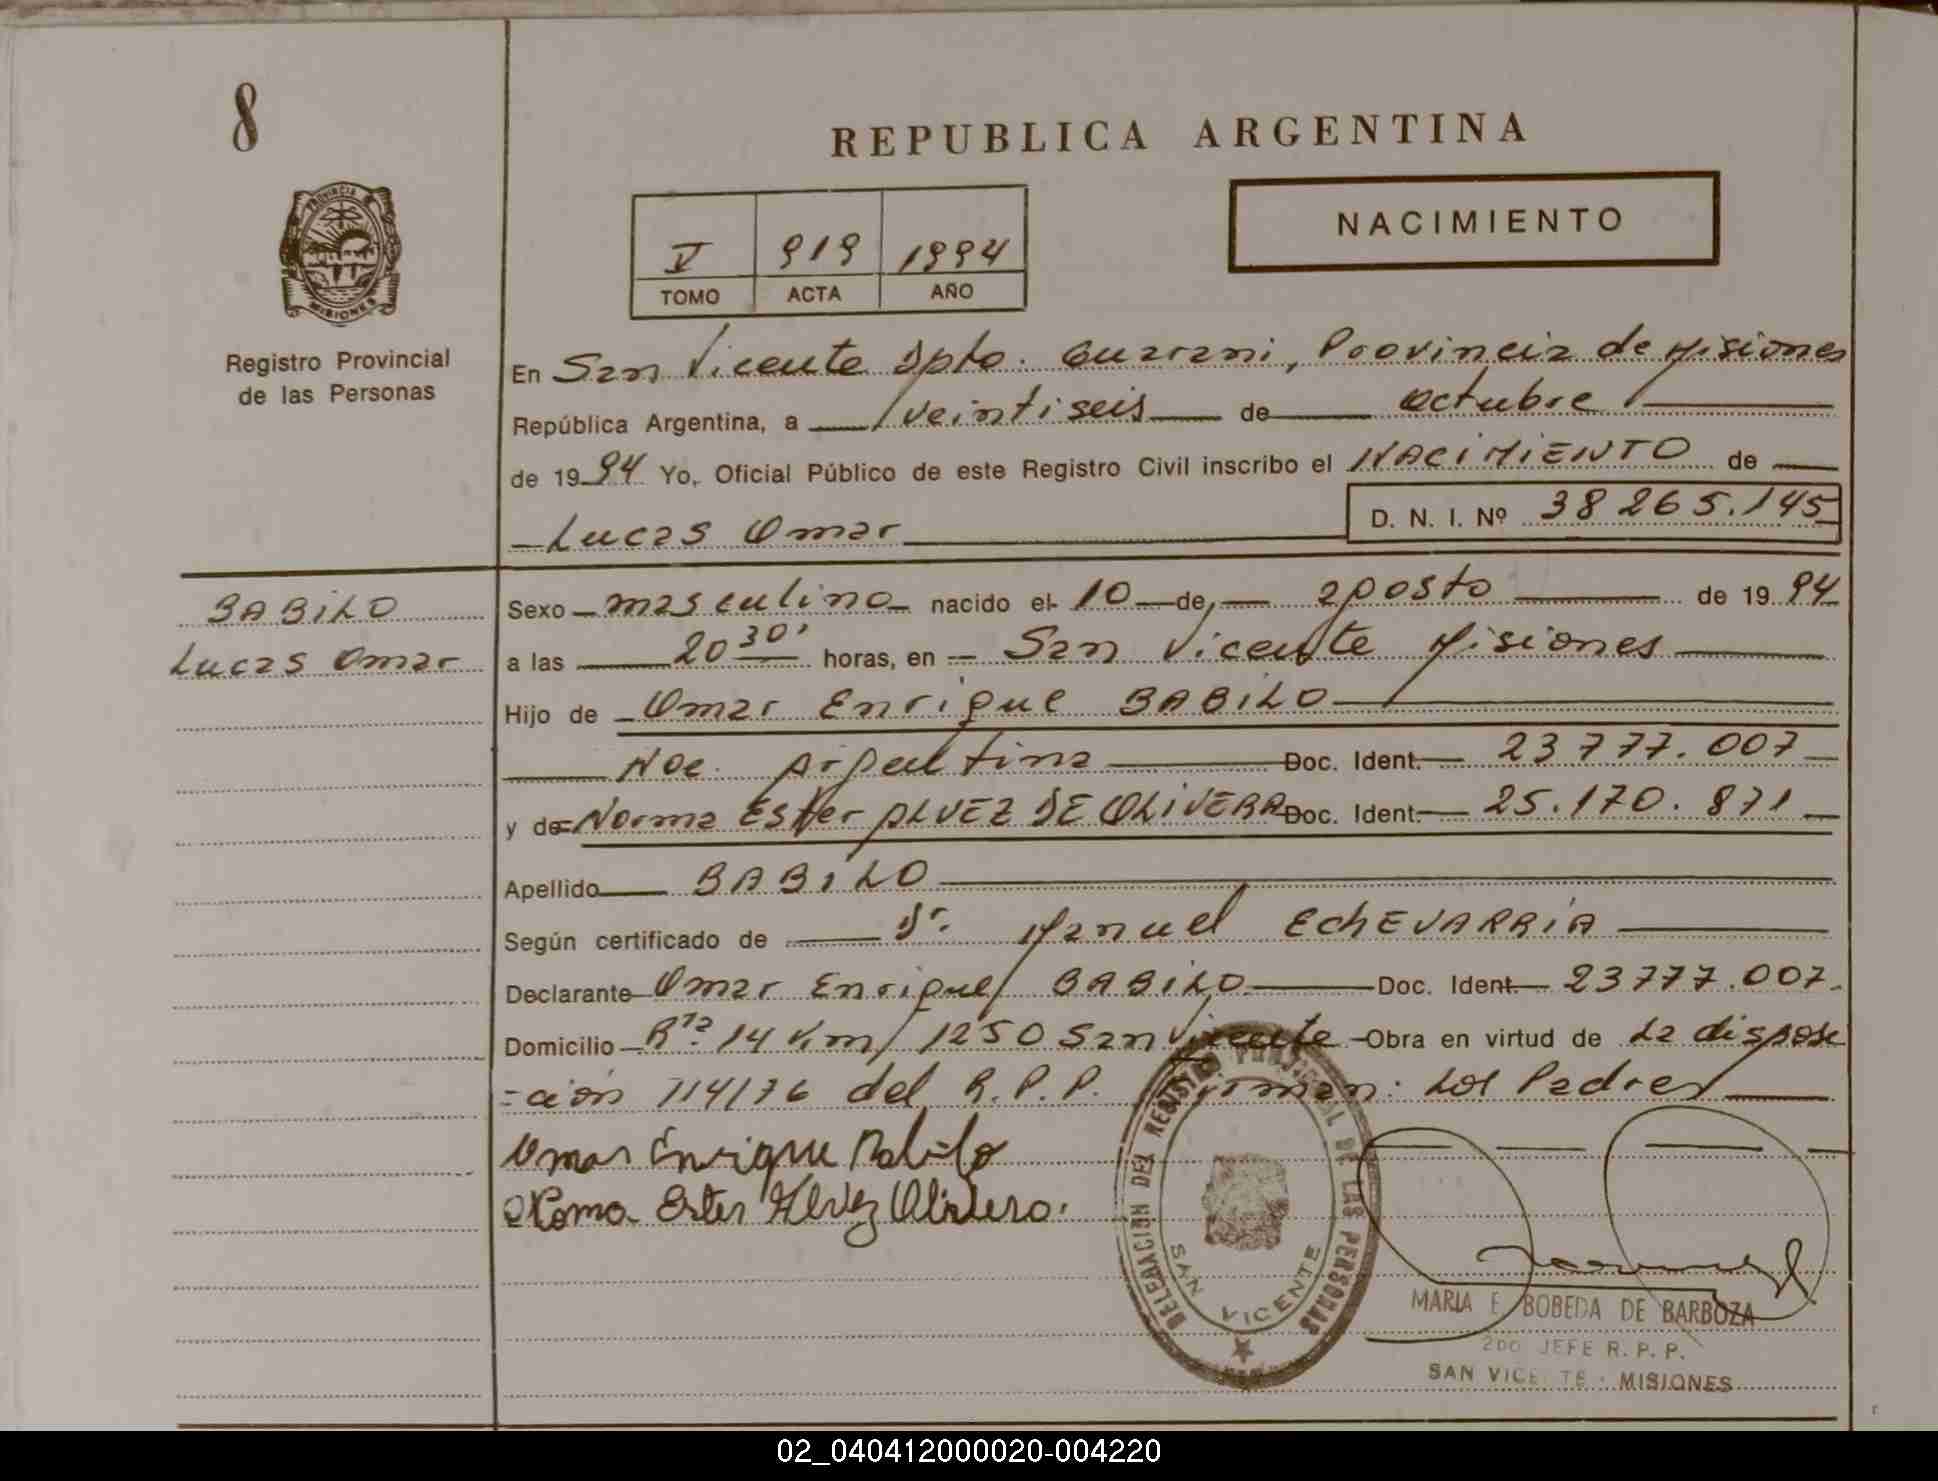 8
REPUBLICA ARGENTINA
PROVINCIA
MISIONES
Registro Provincial
de las Personas
V 919 1994
TOMO ACTA AÑO
NACIMIENTO
En San Vicente Dpto. Guarani, Provincia de Misiones
República Argentina, a veintiseis de octubre
de 1994 Yo, Oficial Público de este Registro Civil inscribo el NACIMIENTO de
Lucas Omar D. N. I. Nº 38265.145
BABILO
Lucas Omar
Sexo masculino nacido el 10 de agosto de 1994
a las 20 30' horas, en San Vicente Misiones
Hijo de Omar Enrique BABILO
Nac. Argentina Doc. Ident. 23777.007
y de Norma Ester ALVEZ DE OLIVERA Doc. Ident. 25.170.871
Apellido BABILO
Según certificado de Dr. Manuel EchEVARRIA
Declarante Omar Enrique BABILO Doc. Ident. 23777.007.
Domicilio Rta. 14 Km 1250 San Vicente -Obra en virtud de La disposi
=ción 114/76 del R.P.P. Firman: Los Padres
Omar Enrique Babilo
Norma Ester Alvez Olivera.
DELEGACION DEL REGISTRO PROVINCIAL DE LAS PERSONAS
SAN VICENTE
MARIA E. BOBEDA DE BARBOZA
2DO JEFE R. P. P.
SAN VICENTE - MISIONES
02_040412000020-004220